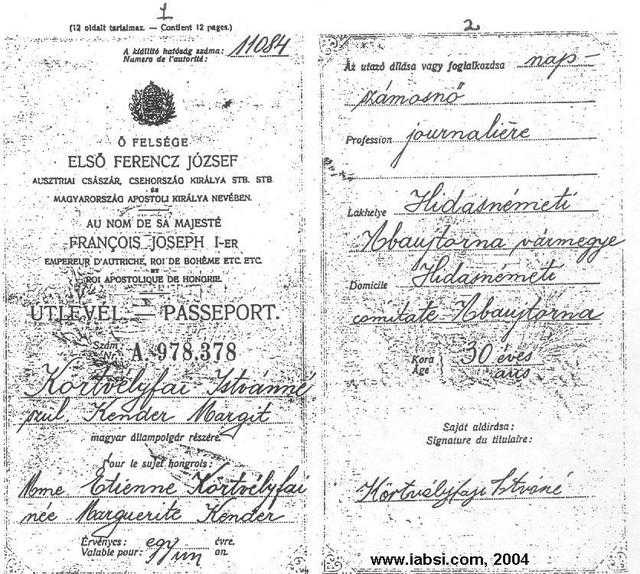 1
(12 oldalt tartalmaz. — Contient 12 pages.)
A kiállító hatóság száma: 11084
Numero de l'autorité:
Ő FELSÉGE
ELSŐ FERENCZ JÓZSEF
AUSZTRIAI CSÁSZÁR, CSEHORSZÁG KIRÁLYA STB. STB.
ÉS
MAGYARORSZÁG APOSTOLI KIRÁLYA NEVÉBEN.
AU NOM DE SA MAJESTÉ
FRANÇOIS JOSEPH I-ER
EMPEREUR D'AUTRICHE, ROI DE BOHÊME ETC. ETC.
ET
ROI APOSTOLIQUE DE HONGRIE.
ÚTLEVÉL — PASSEPORT.
Szám
Nr. A. 978,378
Körtvélyfai Istvánné
szül. Kender Margit
magyar állampolgár részére.
Pour le sujet hongrois:
Mme Etienne Körtvélyfai
née Marguerite Kender
Érvényes: egy évre.
Valable pour: un an.
2
Az utazó állása vagy foglalkozása nap-
számosnő
Profession journalière
Lakhelye Hidasnémeti
Abaujtorna vármegye
Domicile Hidasnémeti
comitate Abaujtorna
Kora 30 éves
Age ans
Saját aláírása:
Signature du titulaire:
Körtvélyfaji Istváné
www.iabsi.com, 2004